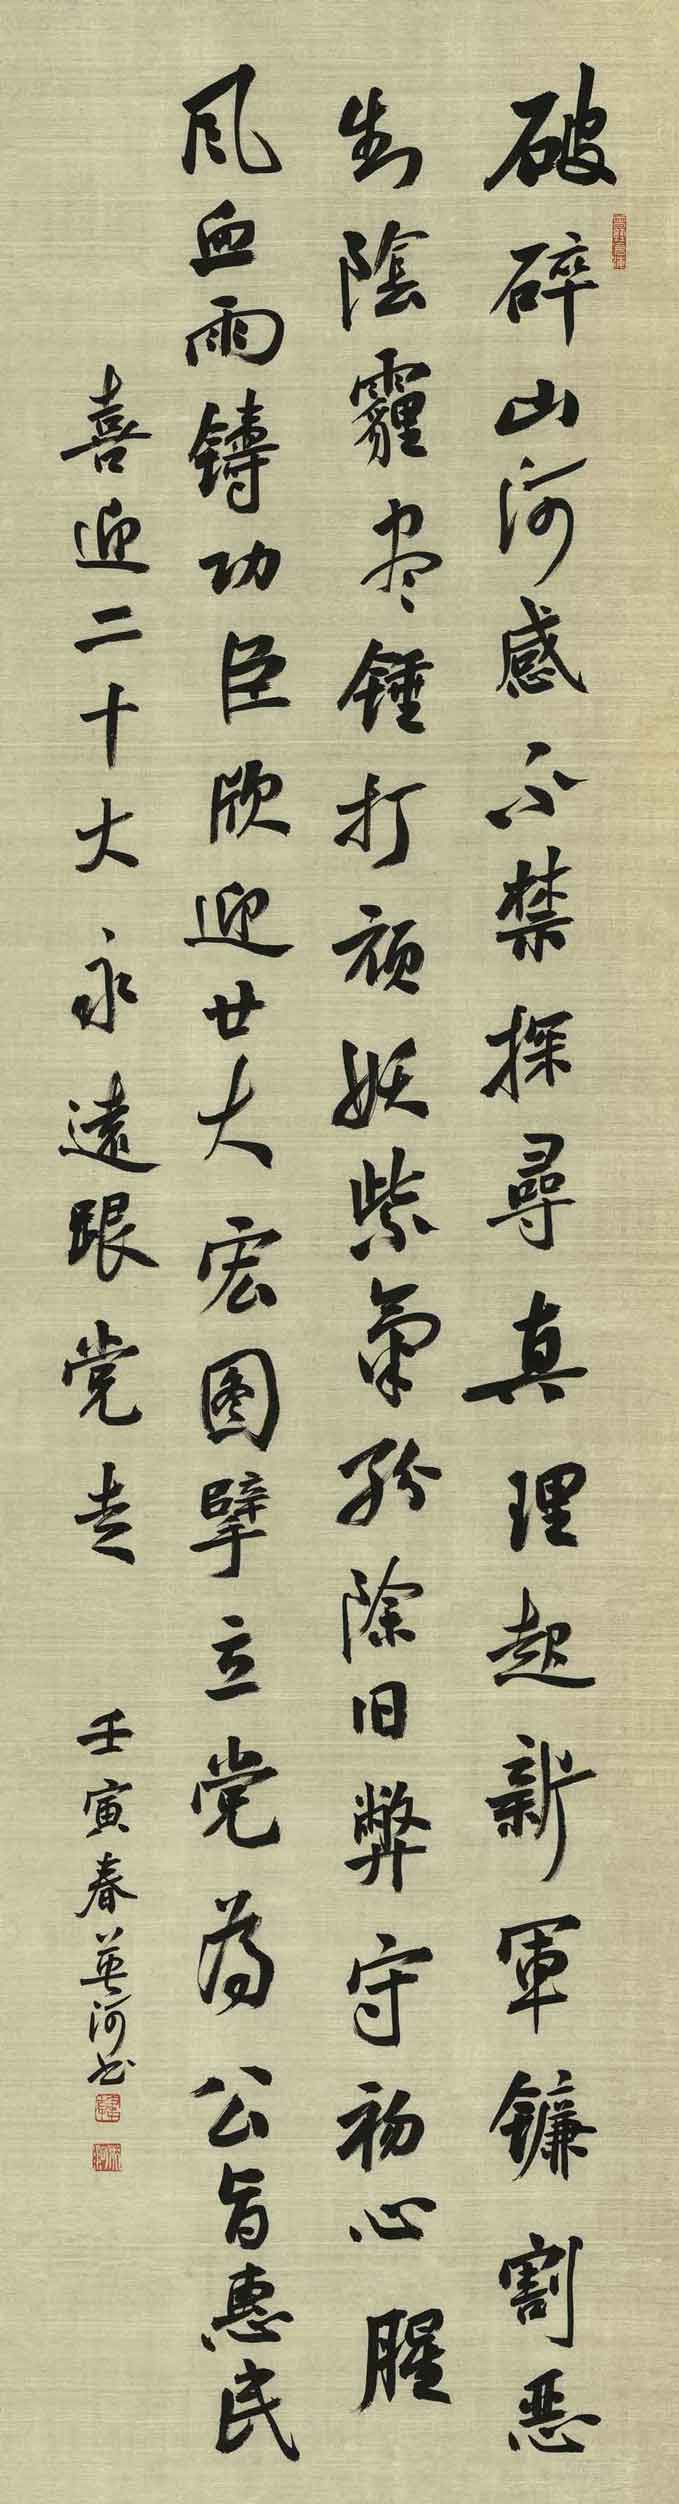 破碎山河感不禁探尋真理起新軍镰割恶
制陰霾尽锤打顽妖紫氣纷除旧弊守初心腥
风血雨鑄功臣欣迎廿大宏图擘立党为公旨惠民
喜迎二十大永遠跟党走 壬寅春英河书